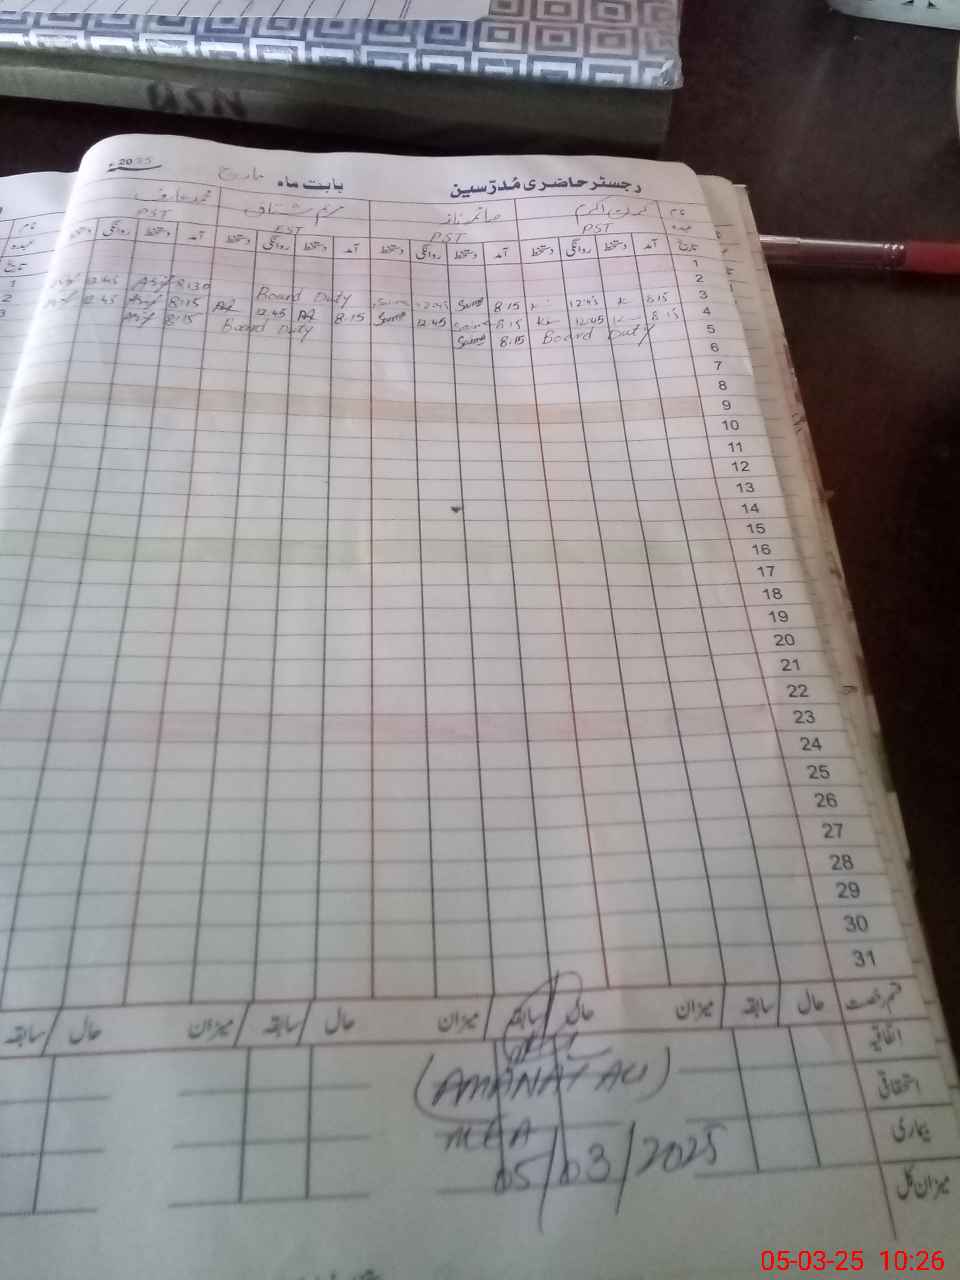 QSN
2025ء
مارچ
بابت ماہ
رجسٹر حاضری مُدرّسین
نام
صائمہ ناز
محمد عارف
عہدہ
PST
PST
PST
PST
تاریخ
آمد دستخط روانگی دستخط آمد دستخط روانگی دستخط آمد دستخط روانگی دستخط آمد دستخط روانگی دستخط
1
2
3 8.15 12.45 8.15 12.45 Board Duty 8:30 12.45
4 8.15 12.45 8.15 12.45 8.15 12.45 8:15 12.45
5 Board Duty 8.15 Board Duty 8:15
6
7
8
9
10
11
12
13
14
15
16
17
18
19
20
21
22
23
24
25
26
27
28
29
30
31
قسم رخصت حال سابقہ میزان حال سابقہ میزان حال سابقہ میزان حال سابقہ
اتفاقیہ
استحقاقی
بیماری
میزان کل
(AMANAT ALI)
MEA
05/03/2025
05-03-25 10:26